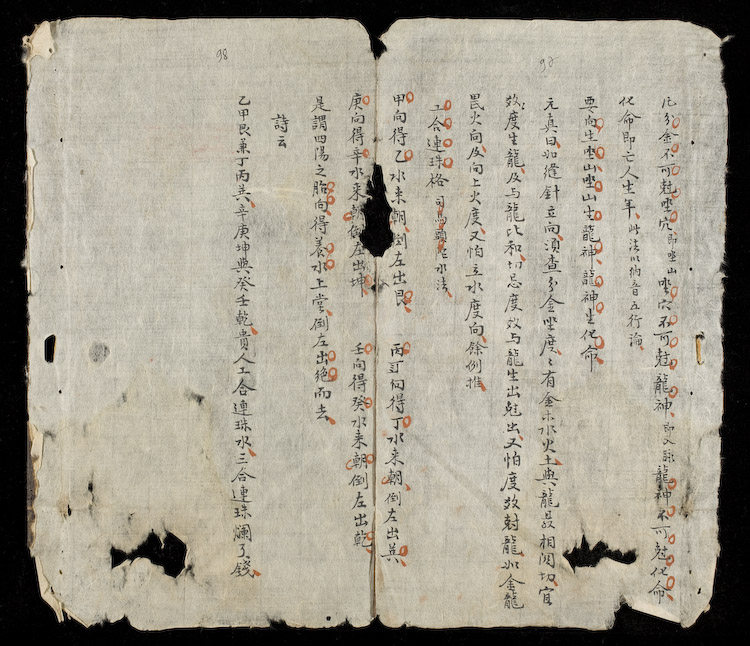 凢分金不可尅坐穴即坐山坐穴不可尅龍神即入脉龍神不可尅化命
化命即亡人生年此法以納音五行論
要向生坐山坐山生龍神龍神生化命
元真曰如縫針立向須查分金坐度〻有金木水火土與龍最相関切宜
放度生龍及与龍比和切忌度放与龍生出尅出又怕度放尅龍如金龍
畏火向及向上火度又怕立水度向餘例推
工合連珠格 司馬頭陀水法
甲向得乙水来朝倒左出艮 丙向得丁水来朝倒左出巽
庚向得辛水来朝倒左出坤 壬向得癸水来朝倒左出乾
是謂四陽之胎向得養水上堂倒左出絶而去
詩云
乙甲艮兼丁丙巽辛庚坤與癸壬乾貴人工合連珠水三合連珠爛了錢
98
97